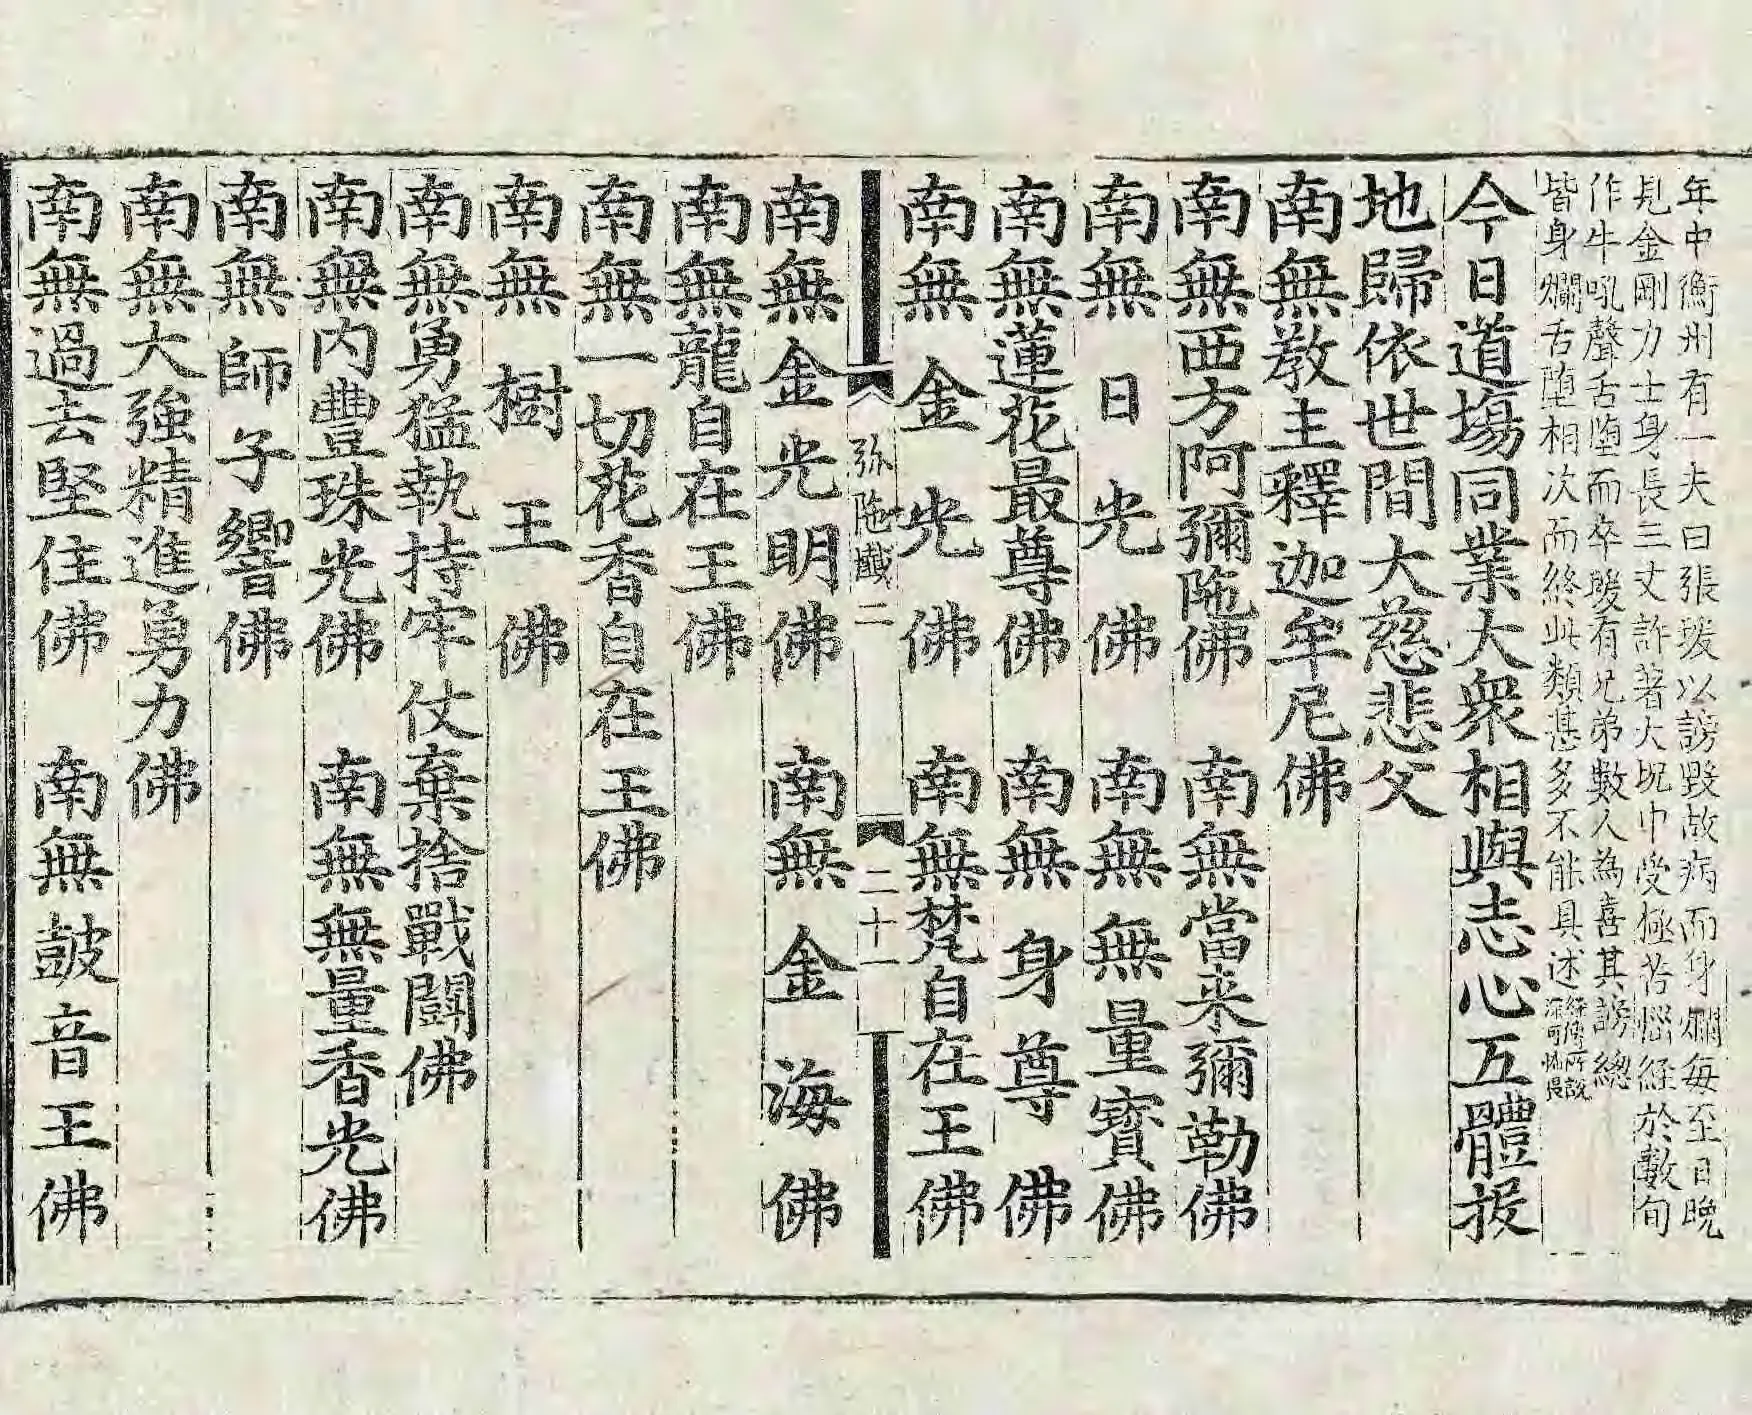 年中衡州有一夫曰張瑗以謗毀故病而身爛每至日晚
見金剛力士身長三丈許著大垙巾受極苦惱經於數旬
作牛吼聲舌墮而卒瑗有兄弟數人為喜其謗總
皆身爛舌墮相次而終此類甚多不能具述
經傳所說
深可怖畏
今日道場同業大衆相與志心五體投
地歸依世間大慈悲父
南無教主釋迦牟尼佛
南無西方阿彌陁佛　南無當来彌勒佛
南無日光佛　南無無量寶佛
南無蓮花最尊佛　南無身尊佛
南無金光佛　南無梵自在王佛
弥陁懺二　二十一
南無金光明佛　南無金海佛
南無龍自在王佛
南無一切花香自在王佛
南無樹王佛
南無勇猛執持牢仗棄捨戰鬪佛
南無内豐珠光佛　南無無量香光佛
南無師子響佛
南無大強精進勇力佛
南無過去堅住佛　南無鼓音王佛